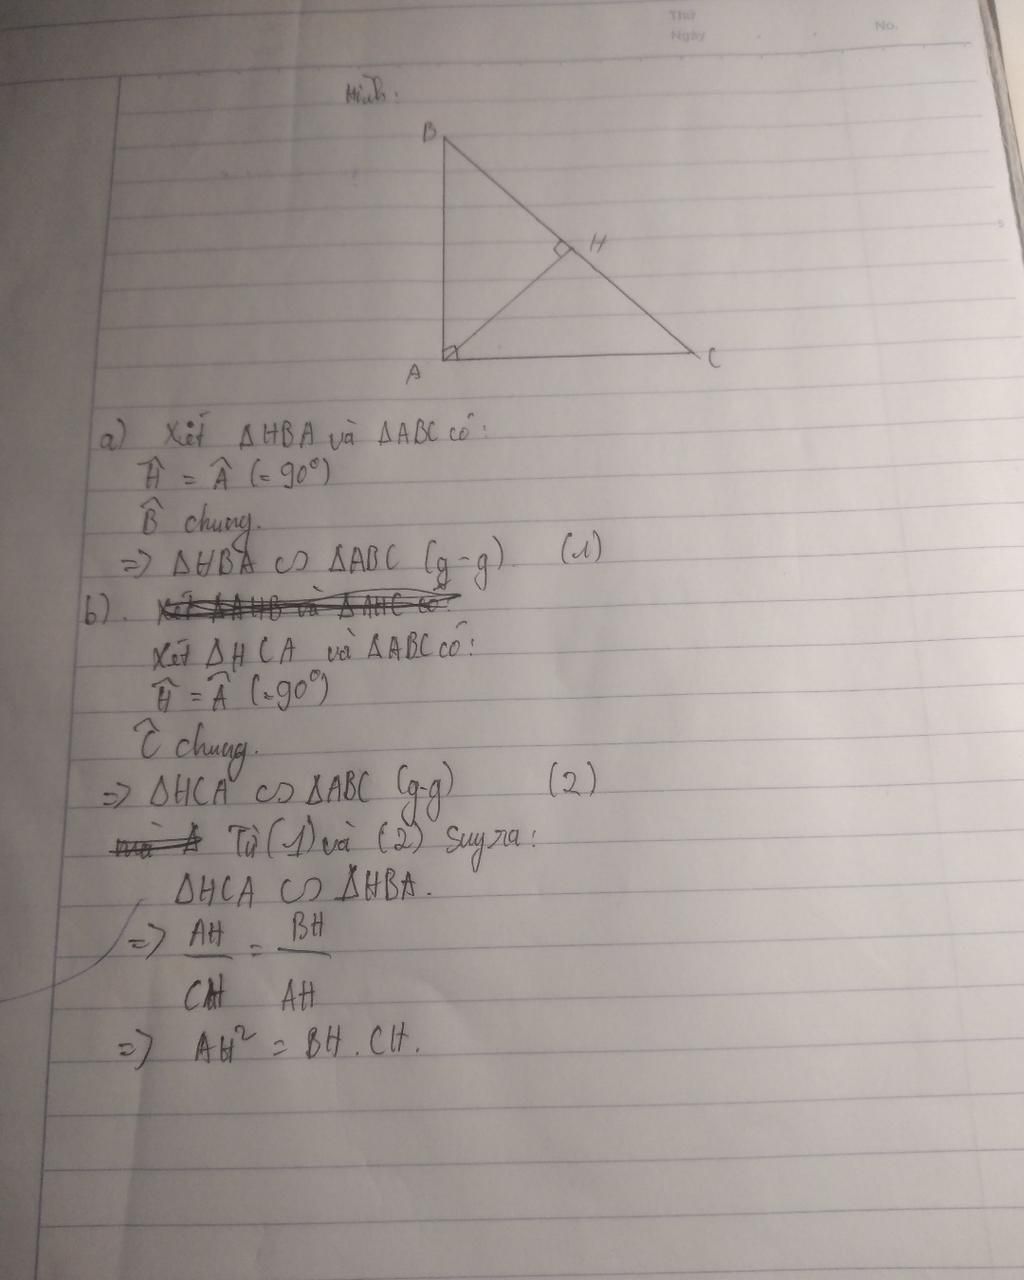 Thứ
Ngày
No.
Hình:
B
H
A
C
a) Xét ΔHBA và ΔABC có:
Ĥ = Â (= 90°)
B̂ chung.
=> ΔHBA ∽ ΔABC (g-g) (1)
b). Xét ΔAHB và ΔAHC có:
Xét ΔHCA và ΔABC có:
Ĥ = Â (=90°)
Ĉ chung.
=> ΔHCA ∽ ΔABC (g-g) (2)
mà Δ Từ (1) và (2) suy ra:
ΔHCA ∽ ΔHBA.
=> AH/CH = BH/AH
=> AH² = BH . CH.